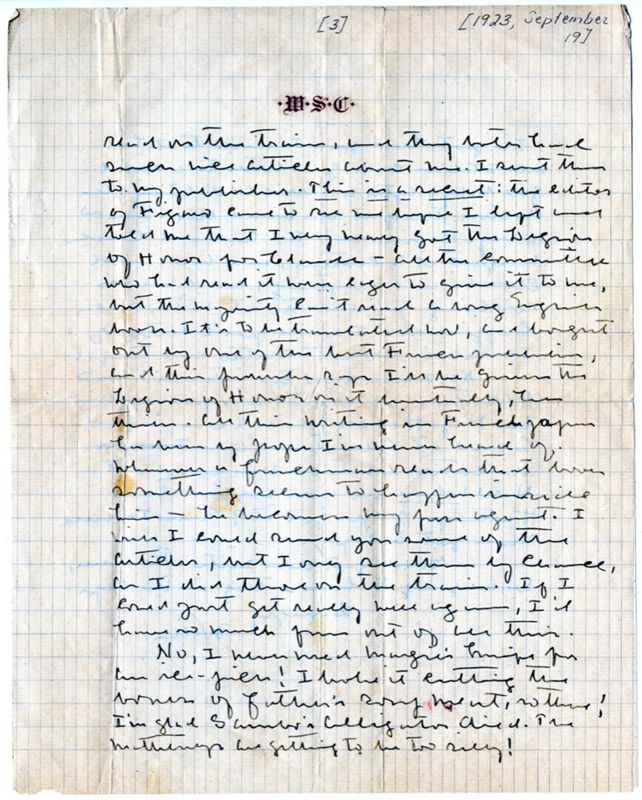 [3] [1923, September
19]
·W·S·C·
read on the train, and they both had
such nice articles about me. I sent them
to my publisher. This is a secret: the editor
of Figaro came to see me before I left and
told me that I very nearly got the Legion
of Honor for Claude — all the committee
who had read it were eager to give it to me,
but the majority can't read a long English
book. It is to be translated now, and brought
out by one of the best French publishers,
and this says I'll be given the
Legion of Honor on it eventually, he
thinks. All this writing in French papers
has been by people I've never heard of.
Whenever a frenchman reads that book
something seems to happen inside
him — he becomes my press agent. I
wish I could send you some of the
articles, but I only see them by chance,
as I did those on the train. If I
could just get really well again, I'd
have so much fun out of all this.
No, I never used Margie's knife for
an ice-pick! I broke it cutting the
bones of father's meat, so there!
I'm glad alligator died. The
are getting to be too silly!